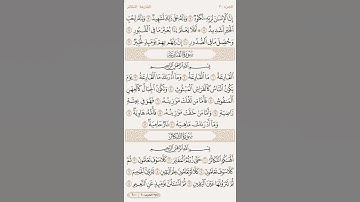 إِنَّ ٱلْإِنسَٰنَ لِرَبِّهِۦ لَكَنُودٌ ۝ وَإِنَّهُۥ عَلَىٰ ذَٰلِكَ لَشَهِيدٌ ۝ وَإِنَّهُۥ لِحُبِّ
ٱلْخَيْرِ لَشَدِيدٌ ۝ أَفَلَا يَعْلَمُ إِذَا بُعْثِرَ مَا فِى ٱلْقُبُورِ
وَحُصِّلَ مَا فِى ٱلصُّدُورِ ۝ إِنَّ رَبَّهُم بِهِمْ يَوْمَئِذٍ لَّخَبِيرٌۢ
سُورَةُ القَارِعَةِ
بِسْمِ ٱللَّهِ ٱلرَّحْمَٰنِ ٱلرَّحِيمِ
ٱلْقَارِعَةُ ۝ مَا ٱلْقَارِعَةُ ۝ وَمَآ أَدْرَىٰكَ مَا ٱلْقَارِعَةُ ۝ يَوْمَ
يَكُونُ ٱلنَّاسُ كَٱلْفَرَاشِ ٱلْمَبْثُوثِ ۝ وَتَكُونُ ٱلْجِبَالُ كَٱلْعِهْنِ
ٱلْمَنفُوشِ ۝ فَأَمَّا مَن ثَقُلَتْ مَوَٰزِينُهُۥ ۝ فَهُوَ فِى عِيشَةٍ
رَّاضِيَةٍ ۝ وَأَمَّا مَنْ خَفَّتْ مَوَٰزِينُهُۥ ۝ فَأُمُّهُۥ هَاوِيَةٌ
وَمَآ أَدْرَىٰكَ مَا هِيَهْ ۝ نَارٌ حَامِيَةٌۢ
سُورَةُ التَّكَاثُرِ
بِسْمِ ٱللَّهِ ٱلرَّحْمَٰنِ ٱلرَّحِيمِ
أَلْهَىٰكُمُ ٱلتَّكَاثُرُ ۝ حَتَّىٰ زُرْتُمُ ٱلْمَقَابِرَ ۝ كَلَّا سَوْفَ تَعْلَمُونَ
ثُمَّ كَلَّا سَوْفَ تَعْلَمُونَ ۝ كَلَّا لَوْ تَعْلَمُونَ عِلْمَ ٱلْيَقِينِ ۝ لَتَرَوُنَّ ٱلْجَحِيمَ
ثُمَّ لَتَرَوُنَّهَا عَيْنَ ٱلْيَقِينِ ۝ ثُمَّ لَتُسْـَٔلُنَّ يَوْمَئِذٍ عَنِ ٱلنَّعِيمِ